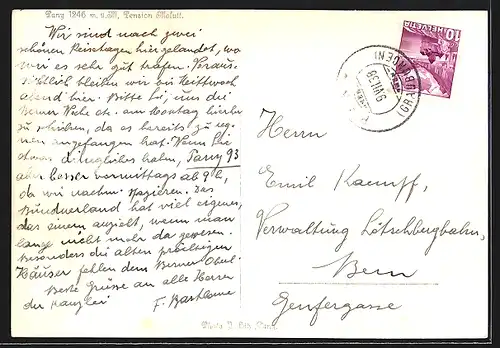 Fang 1246 m. ü. M. Pension
Wir sind nach zwei
schönen Reisetagen hier gelandet, wo
wir es sehr gut trafen. Voraus-
sichtlich bleiben wir bis Mittwoch
abend hier. Bitte Sie, uns die
Berner Woche etc. am Montag hierhin
zu schicken, da es bereits zu reg-
nen angefangen hat. Wenn Sie
etwas dringliches haben, Fang 93
aber besser vormittags ab 9 h,
da wir nachm. spazieren. Das
Bündnerland hat viel eigenes,
das einem anzieht, wenn man
lang nicht mehr da gewesen.
Besonders die alten prächtigen
Häuser fehlen dem Berner Oberl.
Beste Grüsse an alle Herren
der Kanzlei
F.
HELVETIA
10
9.VII.36
(GRAUBÜNDEN)
Herrn
Emil Kaempf,
Verwaltung Lötschbergbahn,
Bern
Genfergasse
Photo